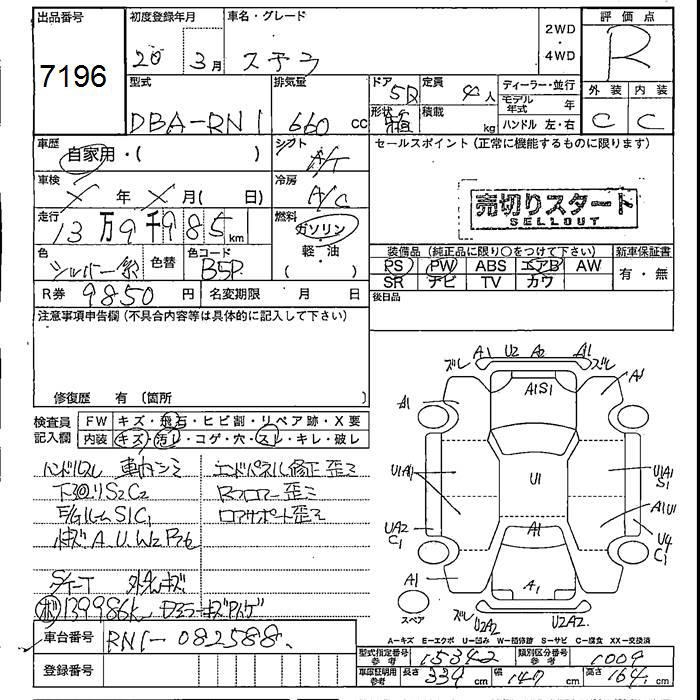 出品番号
7196
初度登録年月
20 3月
車名・グレード
ステラ
2WD
・
4WD
評価点
R
型式
DBA-RN1
排気量
660 cc
ドア
5D
形状
箱
定員
4人
積載
kg
ディーラー・並行
モデル年式 年
ハンドル 左・右
外装
内装
C
C
車歴
自家用・( )
シフト
A/T
車検
X 年 X 月( 日)
冷房
A/C
走行
13万9千985km
燃料
ガソリン
(軽・油)
色
シルバー系
色替
色コード
B5P
R券
9850円
名変期限 月 日
セールスポイント(正常に機能するものに限ります)
売切りスタート
SELLOUT
装備品(純正品に限り○をつけて下さい)
PS PW ABS エアB AW
SR ナビ TV カワ
新車保証書
有・無
後日品
注意事項申告欄(不具合内容等は具体的に記入して下さい)
修復歴 有 〔箇所
検査員記入欄
FW キズ・飛石・ヒビ割・リペア跡・X要
内装 キズ・汚レ・コゲ・穴・スレ・キレ・破レ
ハンドルスレ 車内シミ
下廻りS2C2
E/GルームS1C1
小キズA.U.W2
エンドパネル修正歪ミ
Rフロアー歪ミ
ロアサポート歪ミ
139986k
車台番号
RN1-082588
登録番号
ズレ A1 U2 A2 A1 ズレ
A1S1
A1
A1
U1A1
U1
U1A1
S1
A1U1
UA2
C1
U4
C1
A1
A1
A1
スペア
ズレ U2A2 U2A2
A-キズ E-エクボ U-凹み W-補修跡 S-サビ C-腐食 XX-交換済
型式指定番号 参考
15342
類別区分番号 参考
1009
車庫証明用 参考
長さ 339 cm
幅 147 cm
高さ 164 cm